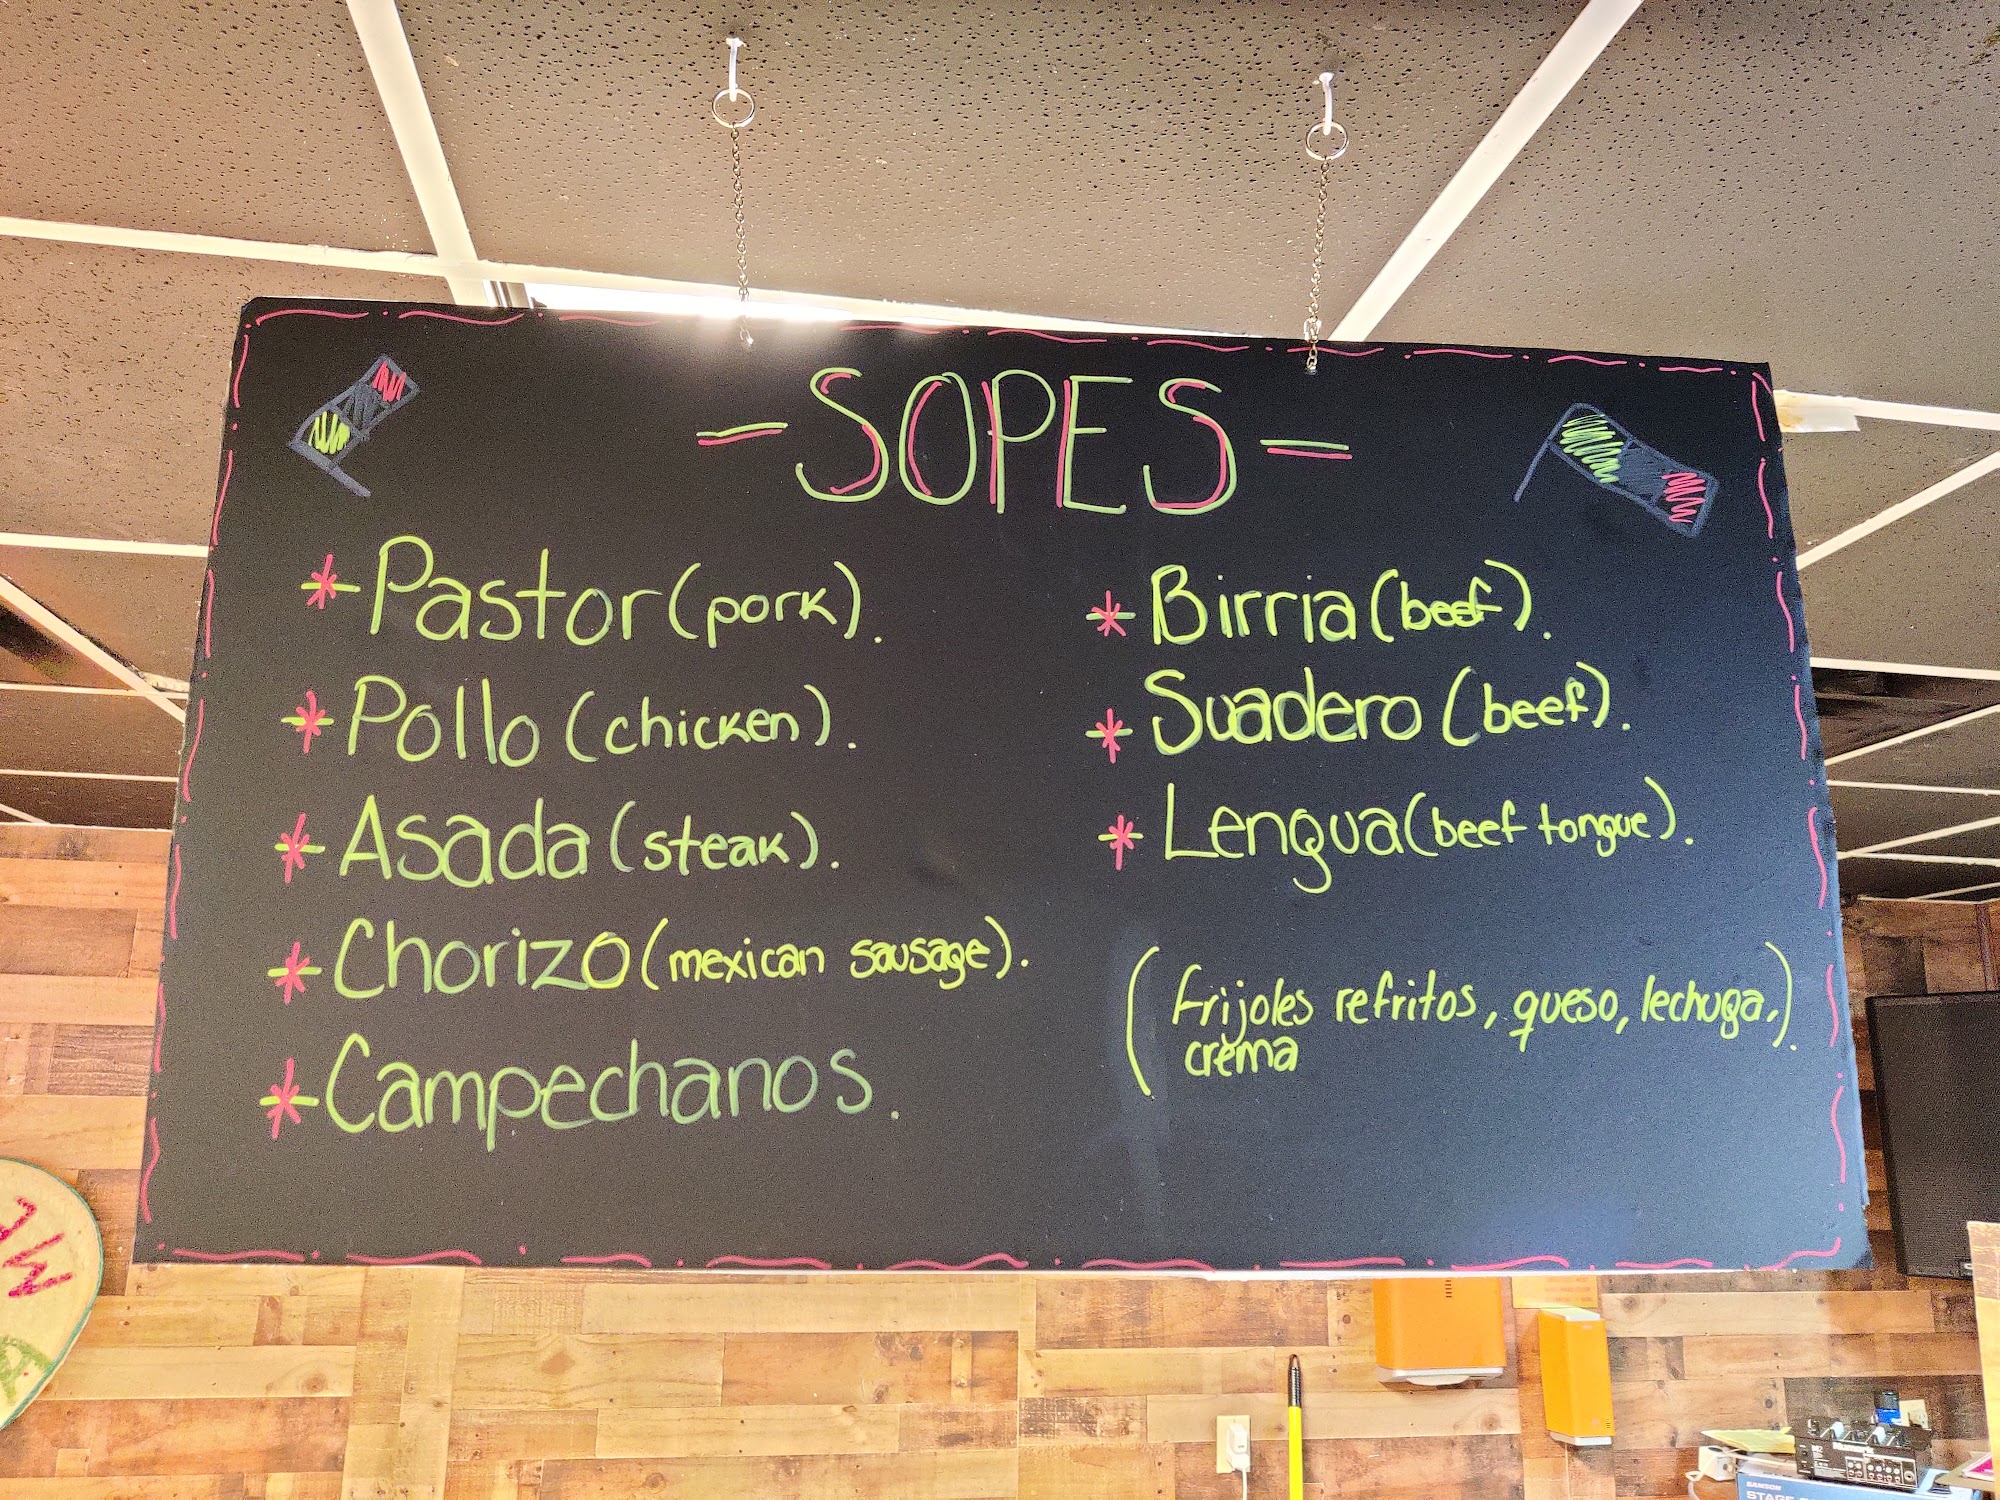 -SOPES-
* Pastor (pork).
* Pollo (chicken).
* Asada (steak).
* Chorizo (mexican sausage).
* Campechanos.
* Birria (beef).
* Suadero (beef).
* Lengua (beef tongue).
(frijoles refritos, queso, lechuga,).
crema
ME
SAMSON
STAGE